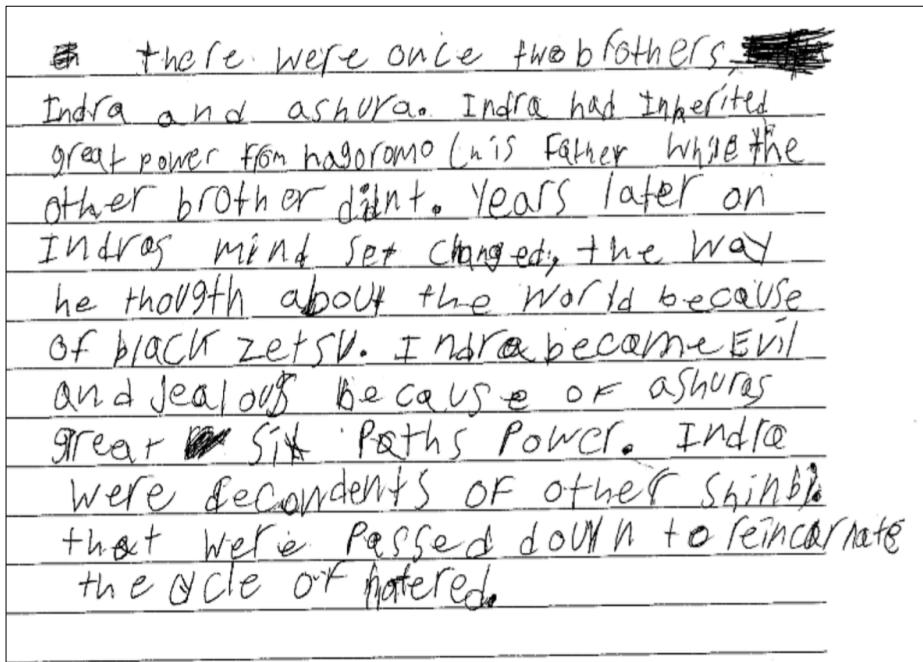 there were once two brothers,
Indra and ashura. Indra had Inherited
great power from hagoromo (his Father while the
other brother diint. Years later on
Indras mind set changed, the way
he thougth about the world because
of black zetsu. Indra became Evil
and Jealous because of ashuras
great Six Paths Power. Indra
were decondents of other shinbi.
that were Passed down to reincarnate
the cycle of hatered.